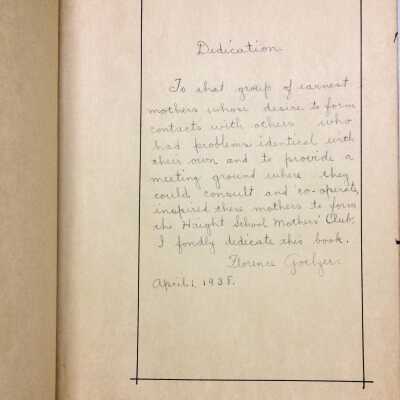 Dedication
To that group of earnest
mothers whose desire to form
contacts with others who
had problems identical with
their own and to provide a
meeting ground where they
could consult and co-operate,
inspired these mothers to form
the Haight School Mothers' Club,
I fondly dedicate this book.
Florence Goelzer.
April 1, 1938.